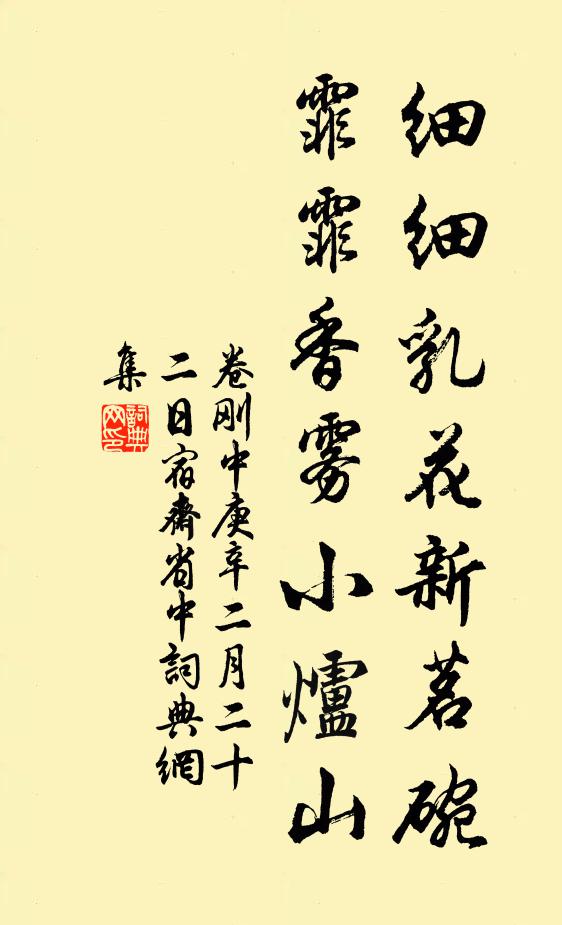 細細乳花新茗碗
霏霏香雾小爐山
卷刚中庚辛二月二十
二日宿齋省中詞典網
集
詞典
网印